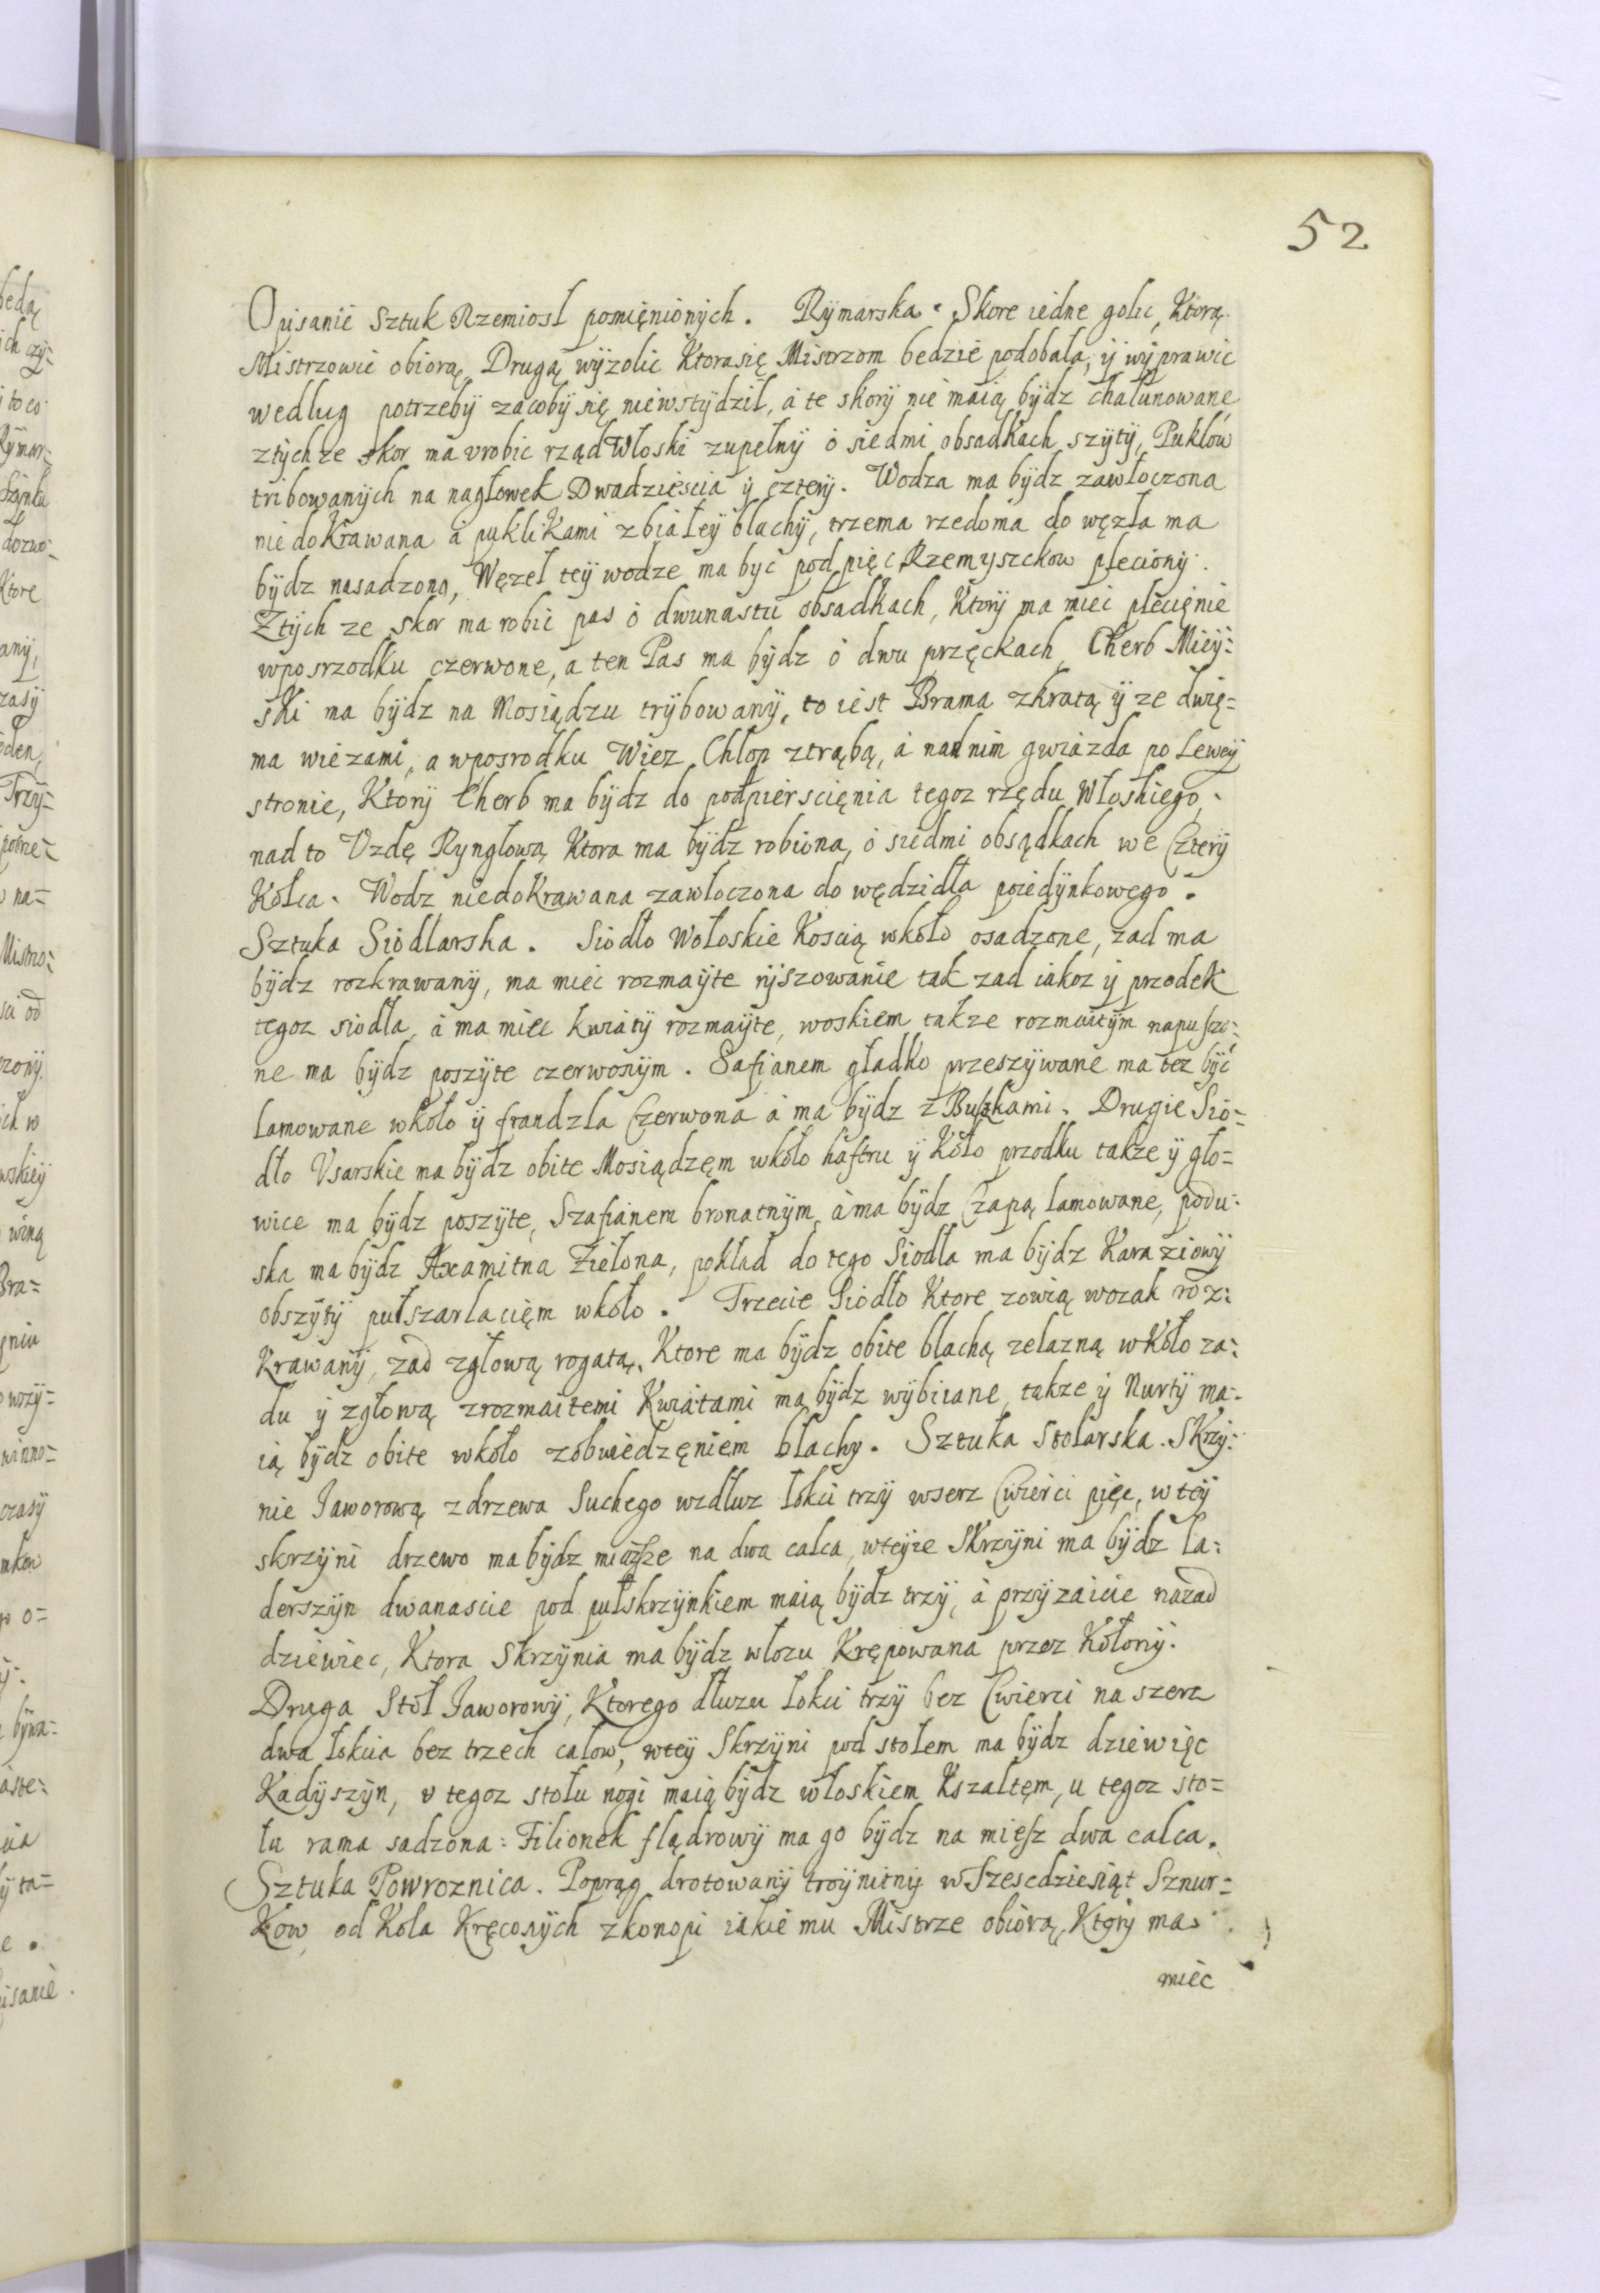 52
Opisanie Sztuk Rzemiosł pomięnionych. Rymarska. Skore iedne golic, Ktorą
Mistrzowie obiorą, Drugą wyzolic Ktorasię Mistrzom bedzie podobała, y wyprawic
według potrzeby zacoby się niewstydził, a te skory nie maią bydz chałunowane
ztychze skor ma vrobic rząd Włoski zupełny o siedmi obsadkach szyty, Puklow
tribowanych na nagłowek Dwadziescia y cztery. Wodza ma bydz zawłoczona
nie doKrawana a puklikami zbiałey blachy, trzema rzedoma do węzła ma
bydz nasadzona, Węzeł tey wodze ma byc pod pięc Rzemyszckow pleciony.
Ztych ze skor ma robic pas o dwunastu obsadkach, Ktory ma miec plecięnie
wposrzodku czerwone, a ten Pas ma bydz o dwu przęckach, Cherb Miey=
ski ma bydz na Mosiądzu trybowany, to iest Brama zkratą y ze dwię=
ma wiezami, a wposrodku Wiez Chłop ztrąbą, a nad nim gwiazda po Lewey
stronie, Ktory Cherb ma bydz do podpierscięnia tegoz rzędu Włoskiego,
nad to Vzdę Rynglową Ktora ma bydz robiona, o siedmi obsądkach we Cztery
Kołca. Wodz niedoKrawana zawłoczona do wędzidła poiedynkowego.
Sztuka Siodlarska. Siodło Wołoskie Koscią wkoło osadzone, zad ma
bydz rozkrawany, ma miec rozmayte ryszowanie tak zad iakoz y przodek
tegoz siodła, a ma miec kwiaty rozmayte, woskiem takze rozmaitym napuszo=
ne ma bydz poszyte czerwonym. Safianem gładko przeszywane ma tez byc
lamowane wkoło y frandzla Czerwona a ma bydz z Buszkami. Drugie Sio=
dło Vsarskie ma bydz obite Mosiądzęm wkoło haftru y Koło przodku takze y gło=
wice ma bydz poszyte, Szafianem bronatnym a ma bydz Czapą lamowane, podu=
ska ma bydz Axamitna Zielona, pokład do tego Siodła ma bydz Karaziowy
obszyty pułszarłacięm wkoło. Trzecie Siodło Ktore zowią wozak roz=
Krawany, zad zgłową rogatą, Ktore ma bydz obite blachą zelazną wKoło za=
du y zgłową zrozmaitemi Kwiatami ma bydz wybiiane, takze y Nurty ma=
ią bydz obite wkoło zobwiedzęniem blachy. Sztuka Stolarska. SKrzy=
nie Jaworową zdrzewa Suchego wzdłuz łokci trzy wserz Cwierci pięc, wtey
skrzyni drzewo ma bydz miąsze na dwa calca, wteyze SKrzyni ma bydz la=
derszyn dwanascie pod pułskrzynkiem maią bydz trzy, a przyzaicie nazad
dziewiec, Ktora Skrzynia ma bydz włozu Krępowana przez Kołony.
Druga Stoł Jaworowy, Ktorego dłuzu łokci trzy bez Cwierci na szerz
dwa łokcia bez trzech calow, wtey Skrzyni pod stołem ma bydz dziewięc
Kadyszyn, v tegoz stołu nogi maią bydz włoskiem Kszałtęm, u tegoz sto=
łu rama sadzona: Filionek flądrowy ma go bydz na miesz dwa calca.
Sztuka Powroznica. Poprąg drotowany troynitny wSzescdziesiąt Sznur=
Kow, od Koła Kręconych zkonopi iakie mu Mistrze obiorą, Ktory ma
miec